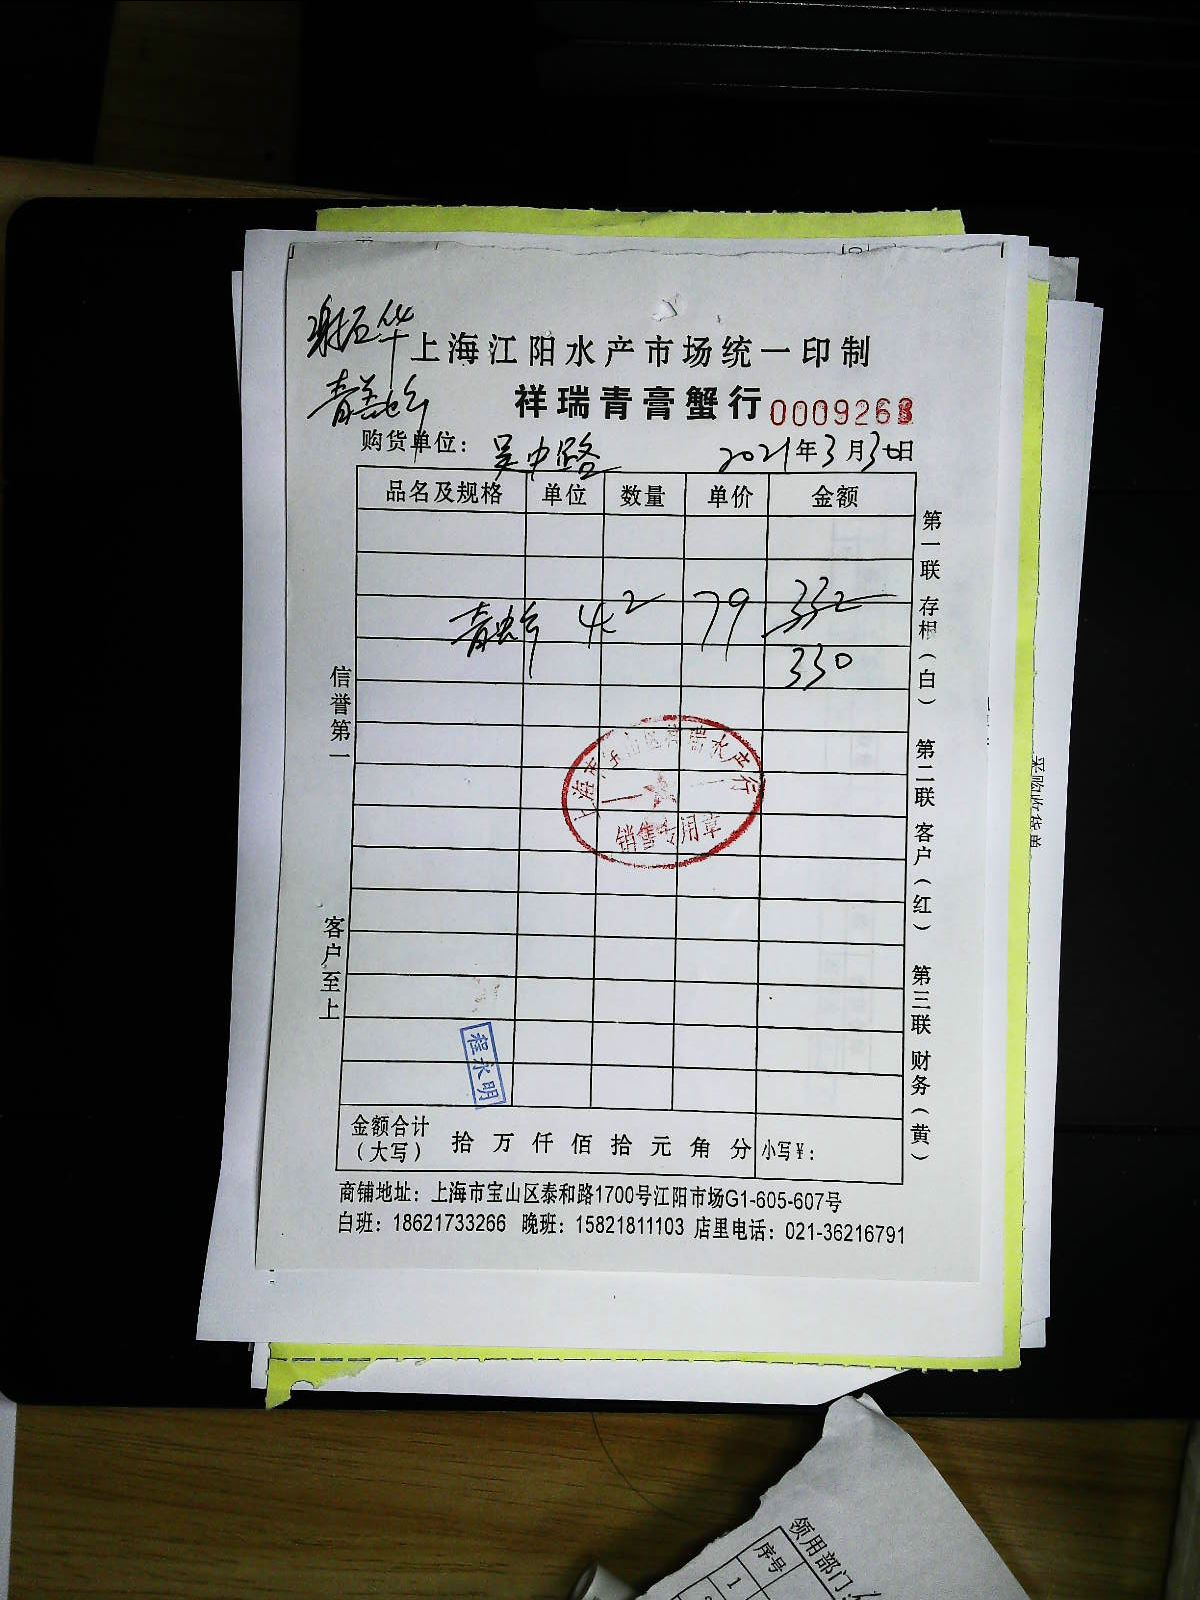 上海江阳水产市场统一印制
祥瑞青膏蟹行 0009263
购货单位：吴中路 2021年3月30日
品名及规格 单位 数量 单价 金额
青 4 2 79 332
330
信誉第一
客户至上
第一联 存根（白） 第二联 客户（红） 第三联 财务（黄）
水产行
销售专用章
程永明
金额合计（大写） 拾 万 仟 佰 拾 元 角 分 小写￥：
商铺地址：上海市宝山区泰和路1700号江阳市场G1-605-607号
白班：18621733266 晚班：15821811103 店里电话：021-36216791
采购收货单
领用部门
序号
1